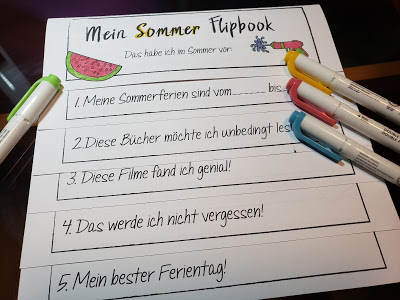 Mein Sommer Flipbook
Das habe ich im Sommer vor
1. Meine Sommerferien sind vom ______ bis
2. Diese Bücher möchte ich unbedingt les
3. Diese Filme fand ich genial!
4. Das werde ich nicht vergessen!
5. Mein bester Ferientag!